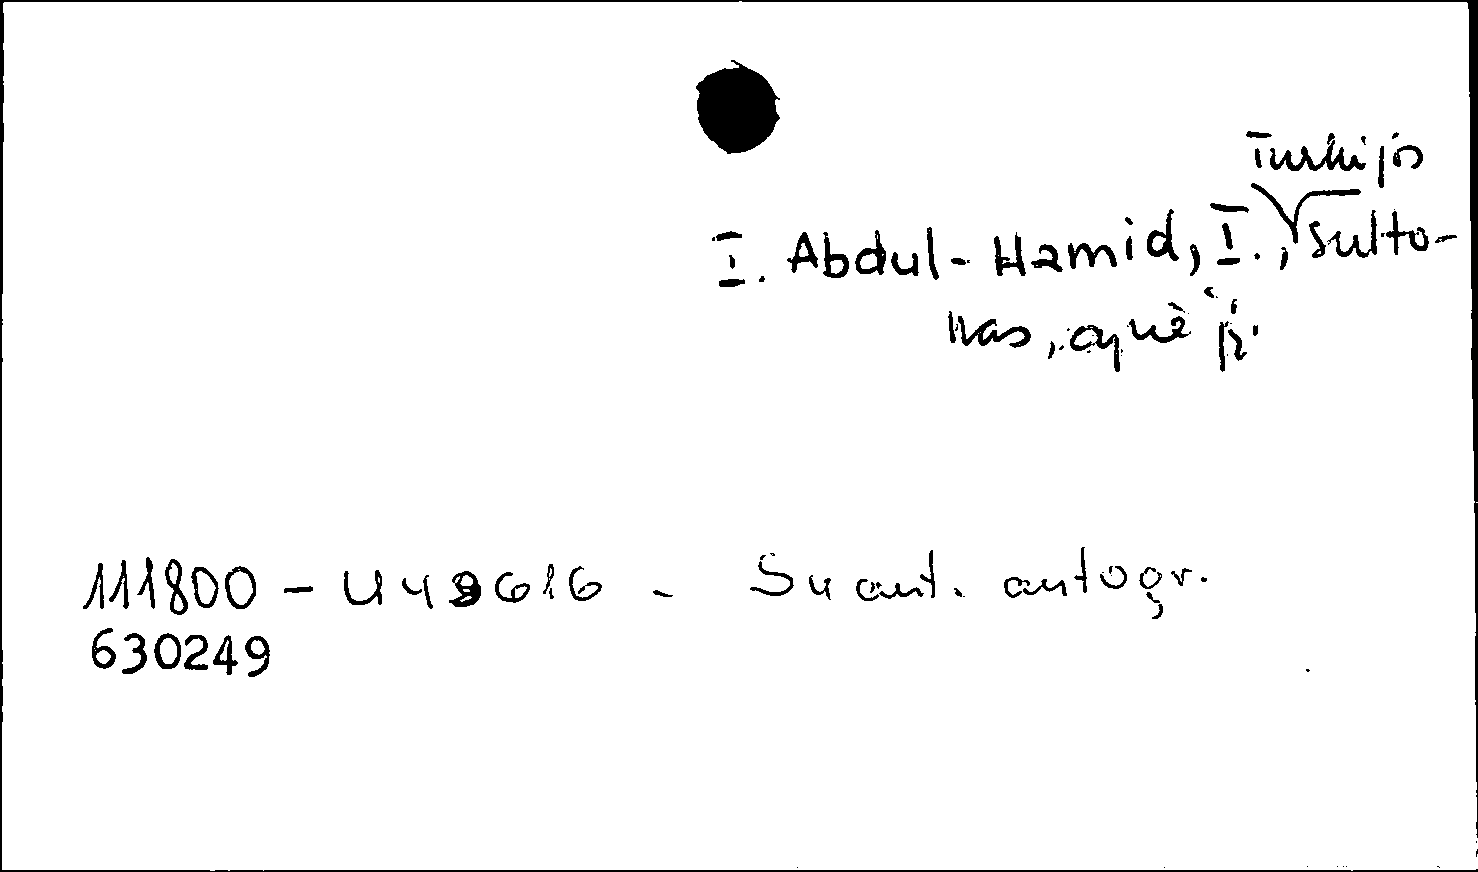 Turkijos
I. Abdul-Hamid, I., sulto-
nas, apie jį
111800 - U49616 - Su aut. autogr.
630249